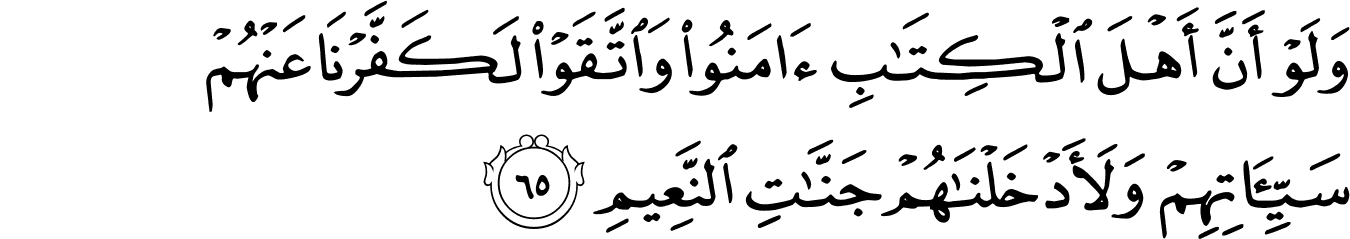 وَلَوْ أَنَّ أَهْلَ ٱلْكِتَـٰبِ ءَامَنُوا۟ وَٱتَّقَوْا۟ لَكَفَّرْنَا عَنْهُمْ
سَيِّـَٔاتِهِمْ وَلَأَدْخَلْنَـٰهُمْ جَنَّـٰتِ ٱلنَّعِيمِ ٦٥